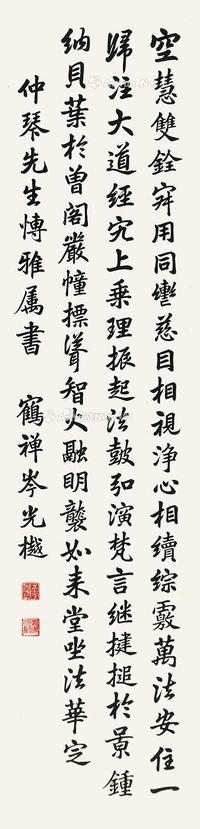 空慧雙銓寂用同轡慈目相視淨心相續綜覈萬法安住一
歸注大道經究上乗理振起法皷弘演梵言継揵搥於景鍾
納貝葉於曾閣嚴幢摽聳智火融明襲如来堂坐法華定
仲琴先生愽雅属書 鶴禅岑光樾